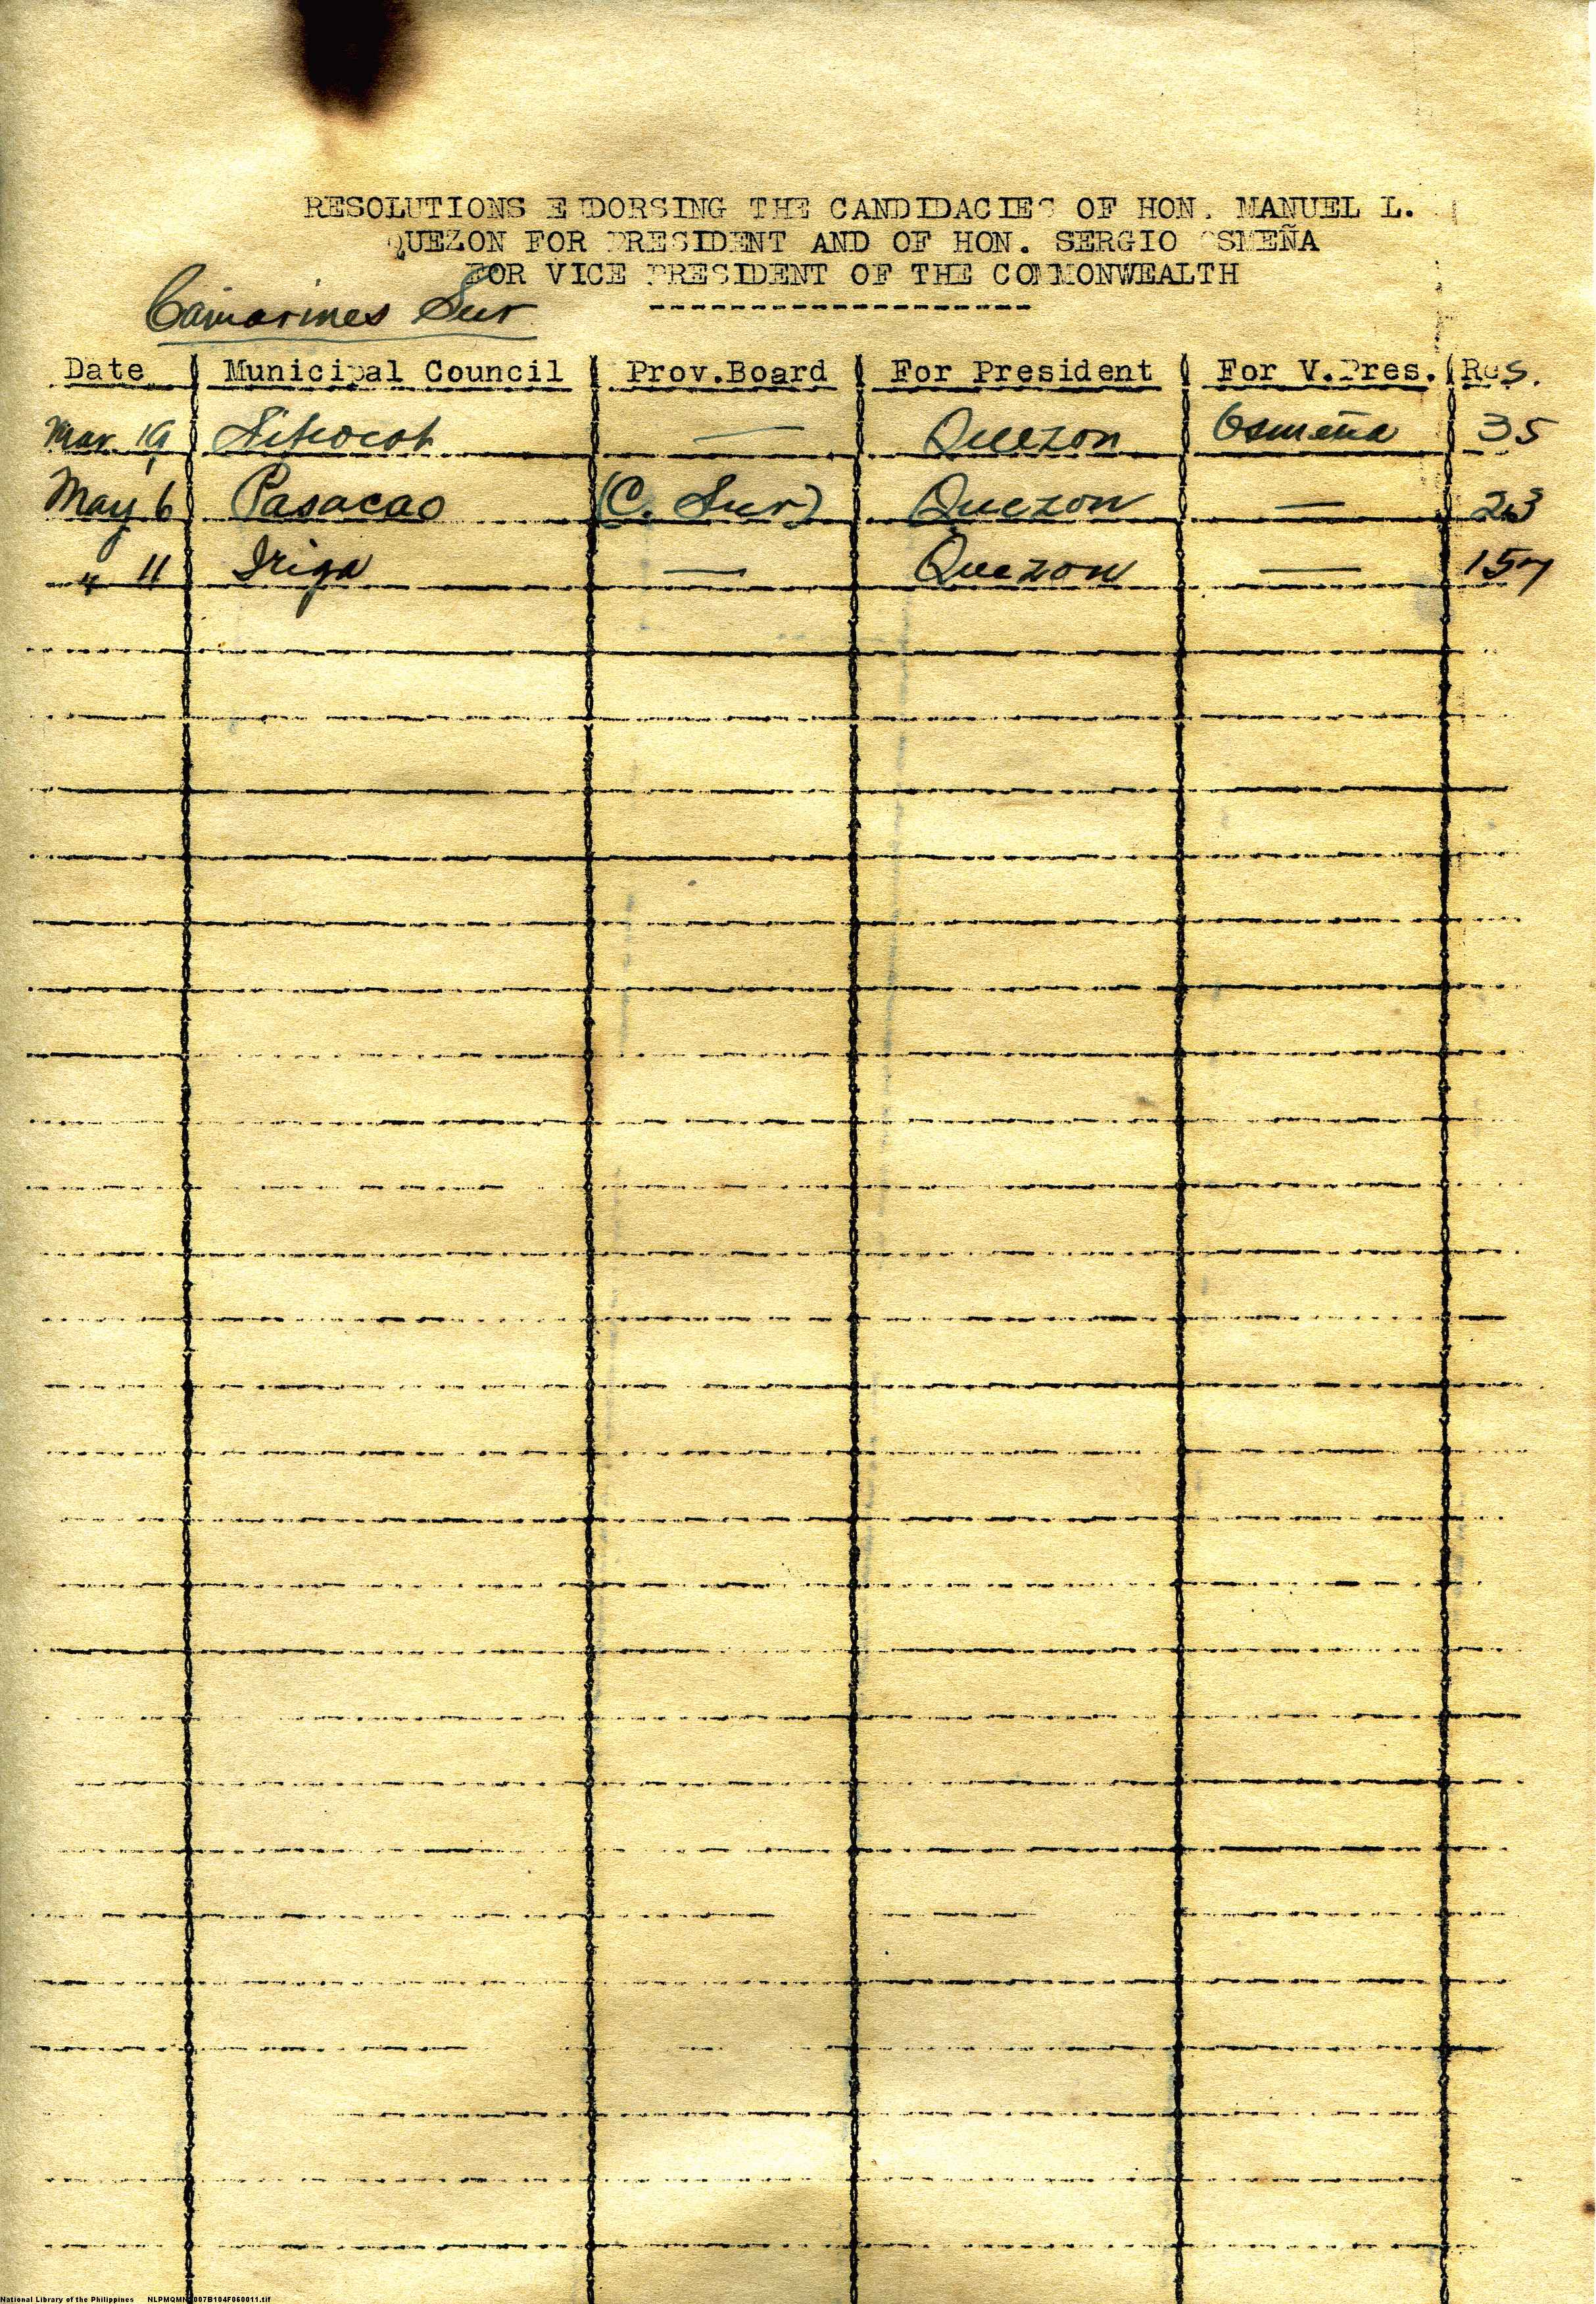 RESOLUTIONS ENDORSING THE CANDIDACIES OF HON. MANUEL L.
QUEZON FOR PRESIDENT AND OF HON. SERGIO OSMEÑA
FOR VICE PRESIDENT OF THE COMMONWEALTH
Camarines Sur
Date Municipal Council Prov.Board For President For V.Pres. Res.
Mar. 19 Sipocot — Quezon Osmeña 35
May 6 Pasacao (C. Sur) Quezon — 23
" 11 Iriga — Quezon — 157
National Library of the Philippines